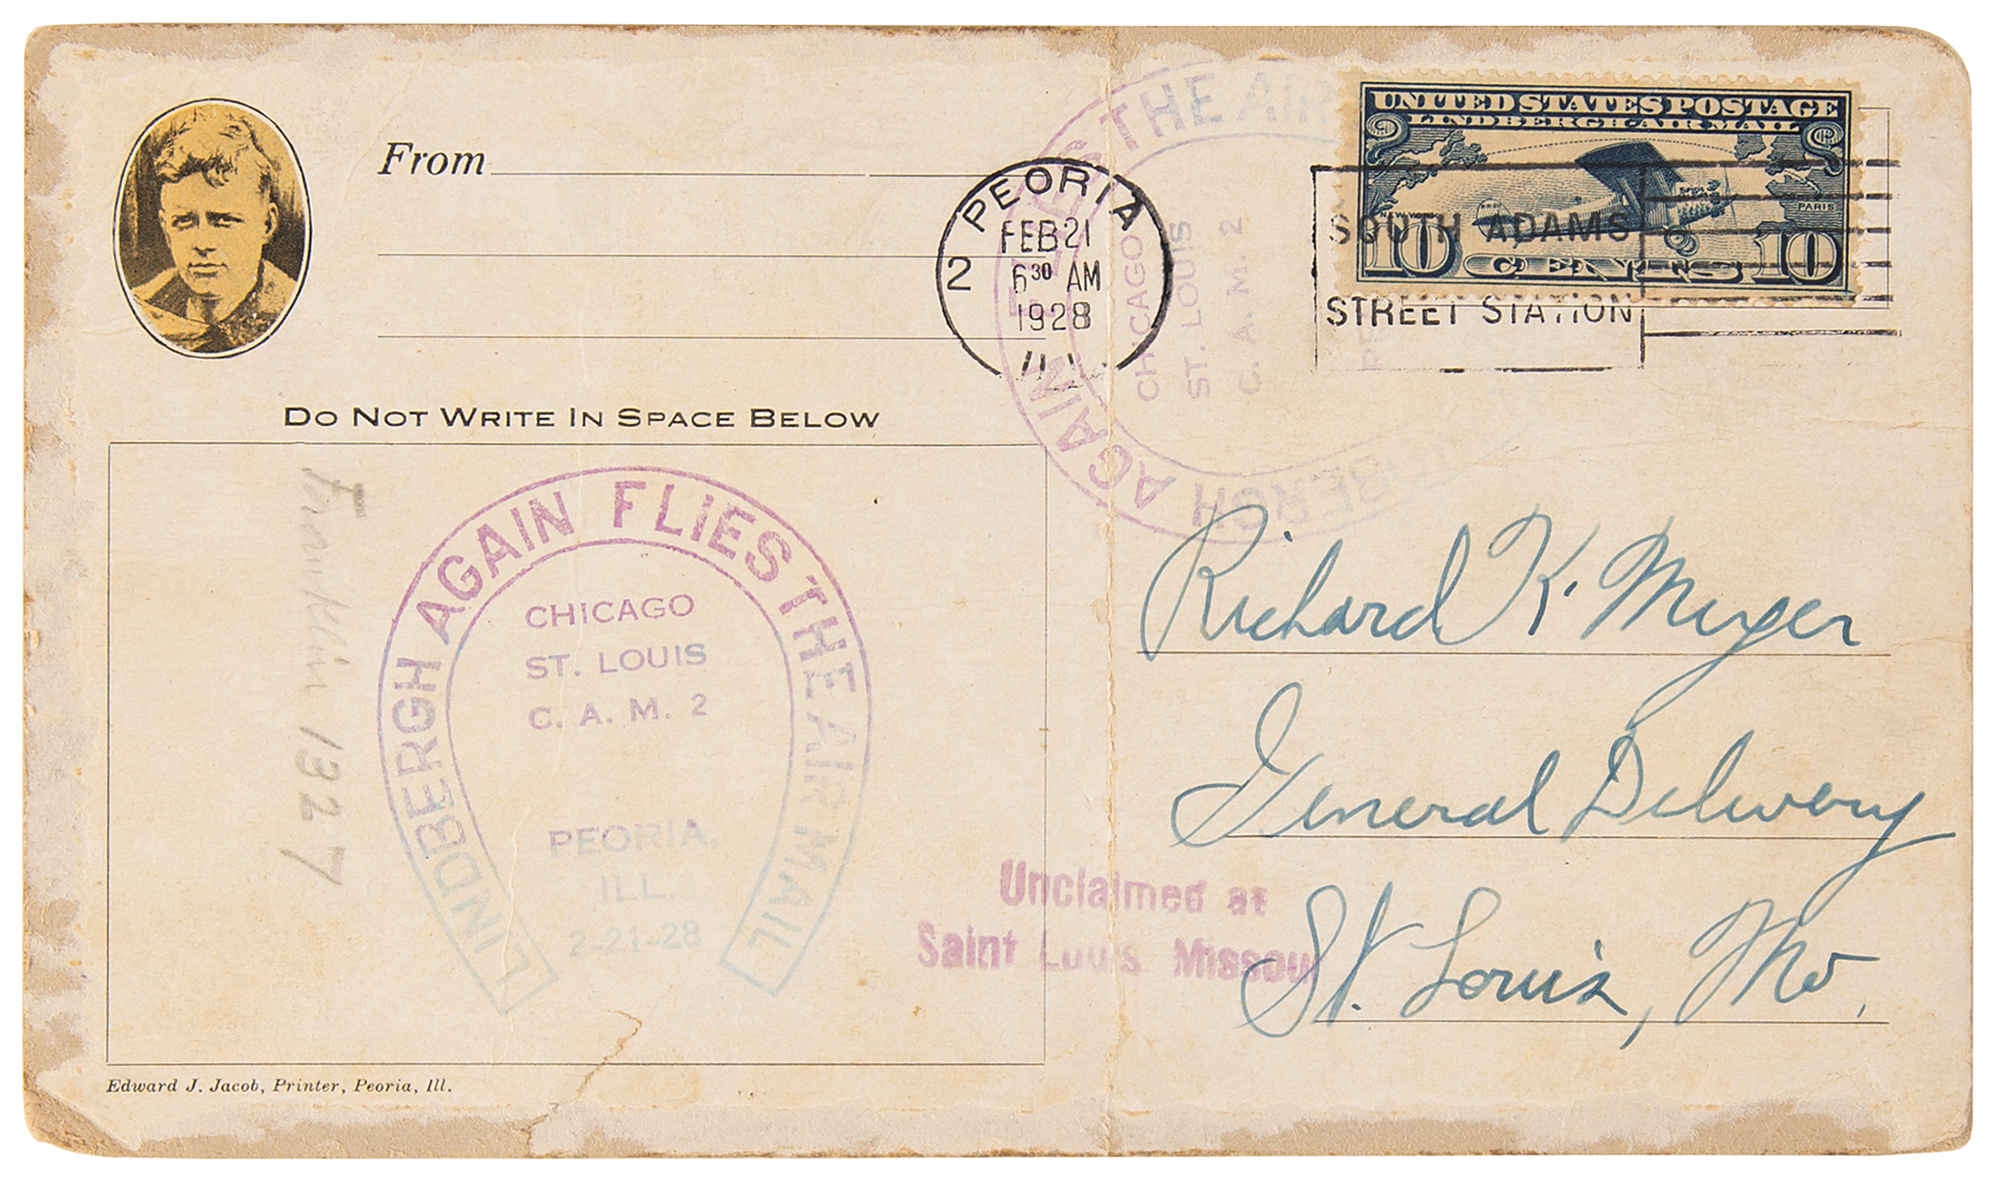 From
PEORIA
FEB 21
6 30 AM
1928
2
UNITED STATES POSTAGE
LINDBERGH AIR MAIL
NEW YORK
PARIS
10 CENTS 10
SOUTH ADAMS
STREET STATION
LINDBERGH AGAIN FLIES THE AIR
CHICAGO
ST. LOUIS
C. A. M. 2
DO NOT WRITE IN SPACE BELOW
LINDBERGH AGAIN FLIES THE AIR MAIL
CHICAGO
ST. LOUIS
C. A. M. 2
PEORIA,
ILL.
2-21-28
Franklin 1327
Richard K. Meyer
General Delivery
St. Louis, Mo.
Unclaimed at
Saint Louis Missou
Edward J. Jacob, Printer, Peoria, Ill.